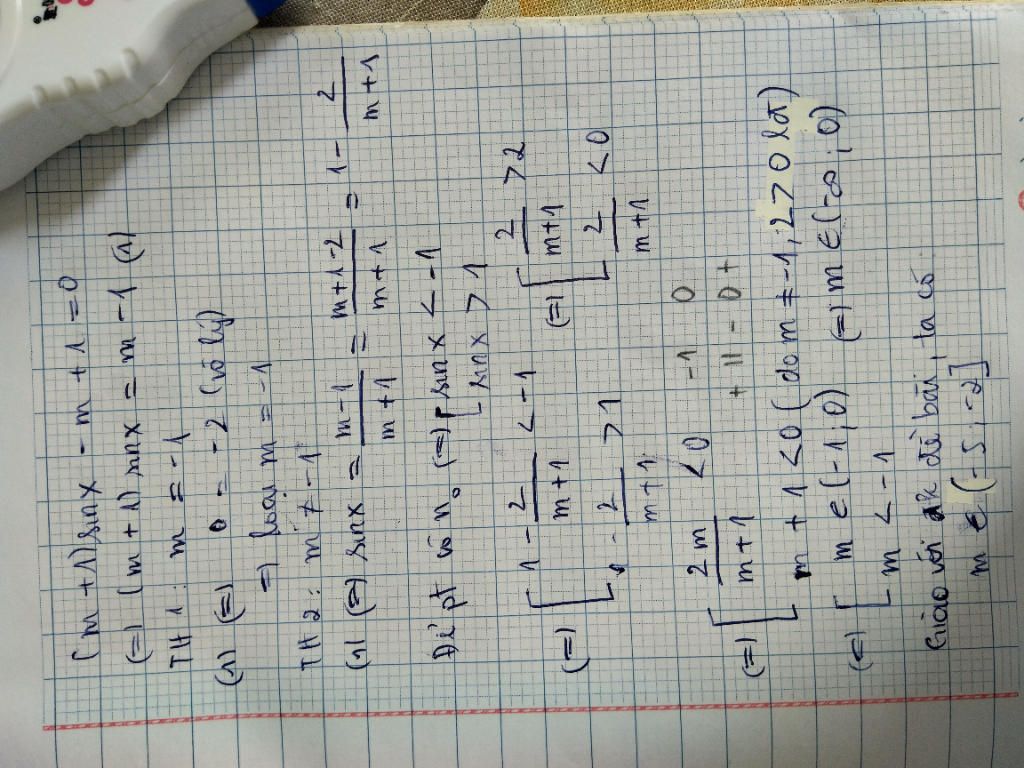 (m+1) sinx - m + 1 = 0
(=) (m+1) sinx = m - 1 (1)
TH 1: m = -1
(1) (=) 0 = -2 (vô lý)
=) loại m = -1
TH 2: m ≠ -1
(1) (=) sinx = \frac{m-1}{m+1} = \frac{m+1-2}{m+1} = 1 - \frac{2}{m+1}
Để pt vô n₀ (=) [ sinx < -1
sinx > 1
(=) [ 1 - \frac{2}{m+1} < -1 (=) [ \frac{2}{m+1} > 2
1 - \frac{2}{m+1} > 1 \frac{2}{m+1} < 0
(=) [ \frac{2m}{m+1} < 0 -1 0
+ || - 0 +
m + 1 < 0 (do m ≠ -1, 2 > 0 lđ)
(=) [ m ∈ (-1; 0) (=) m ∈ (-∞; 0)
m < -1
Giao với đk đề bài, ta có
m ∈ (-5; -2]